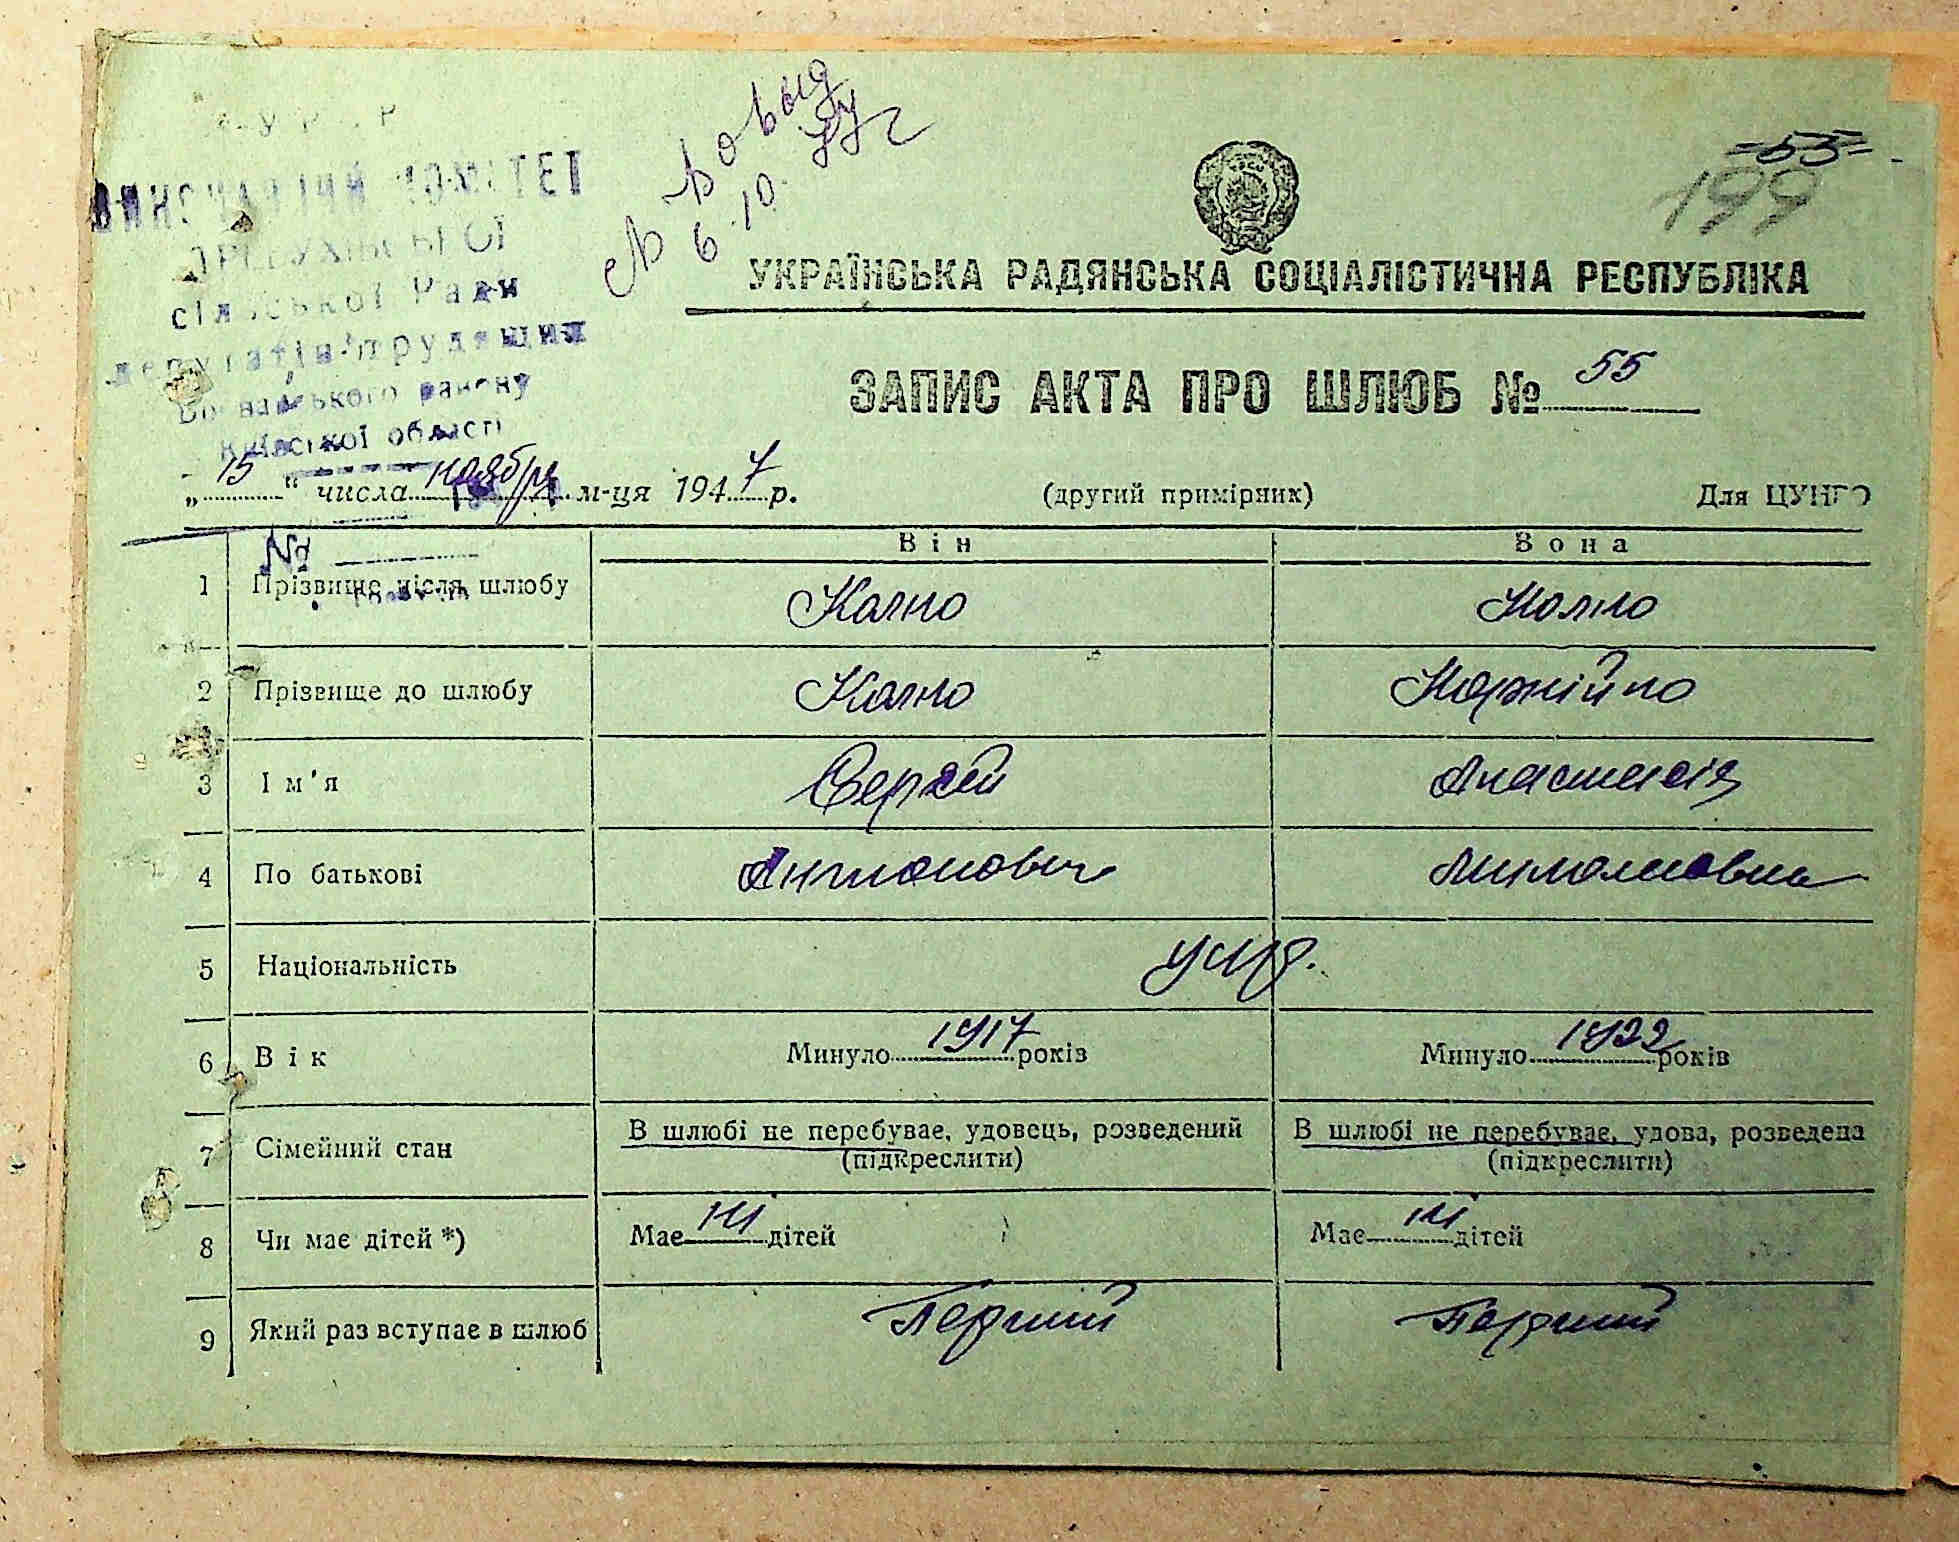 -55-
199
6.10
УКРАЇНСЬКА РАДЯНСЬКА СОЦІАЛІСТИЧНА РЕСПУБЛІКА
ВИКОНАВЧИЙ КОМІТЕТ
сільської Ради
депутатів трудящих
району
Київської області
ЗАПИС АКТА ПРО ШЛЮБ № 55
„15“ числа ноября м-ця 1947 р. (другий примірник) Для ЦУНГО
№
Він Вона
1 Прізвище після шлюбу
2 Прізвище до шлюбу Корнійко
3 Ім'я Сергей Анастасія
4 По батькові Антонович
5 Національність укр.
6 Вік Минуло 1917 років Минуло 1922 років
7 Сімейний стан В шлюбі не перебуває, удовець, розведений В шлюбі не перебуває, удова, розведена
(підкреслити) (підкреслити)
8 Чи має дітей *) Має ні дітей Має ні дітей
9 Який раз вступає в шлюб Перший Перший